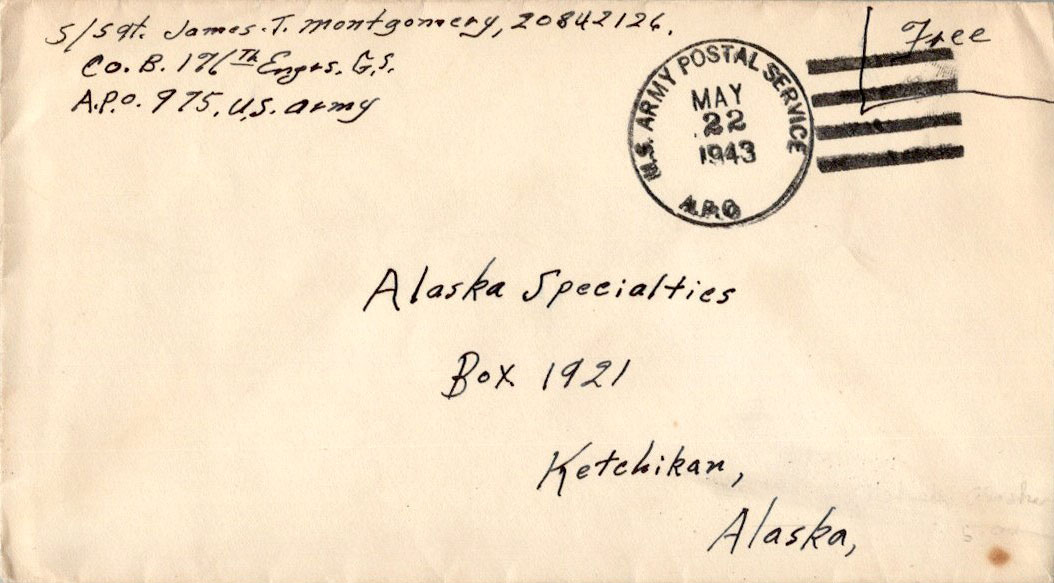 S/Sgt. James. T. Montgomery, 20842126.
Co. B. 176th Engrs. G.S.
A.P.O. 975, U.S. Army
Free
U.S. ARMY POSTAL SERVICE
MAY
22
1943
A.P.O.
Alaska Specialties
Box 1921
Ketchikan,
Alaska,